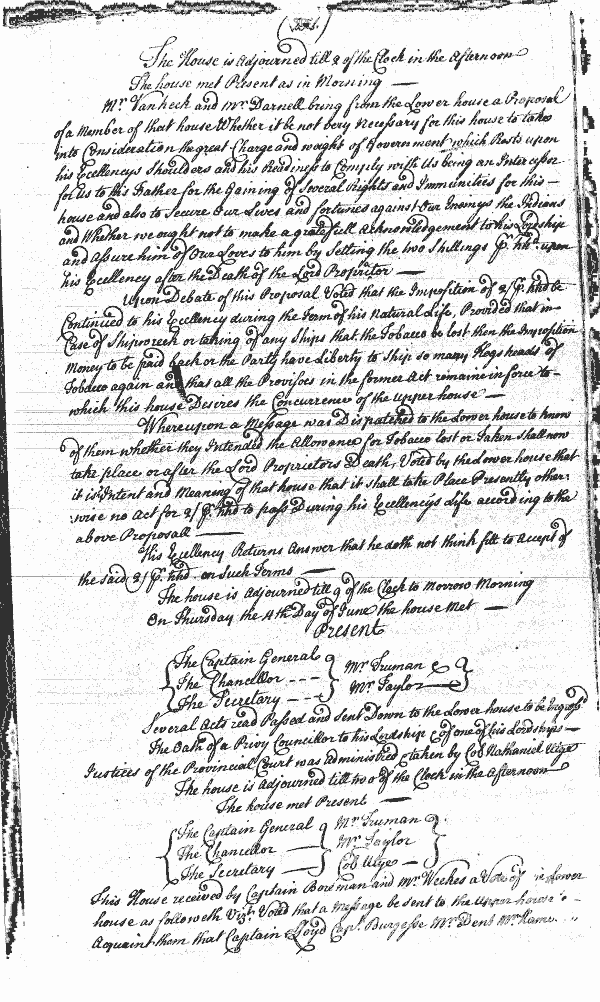 The House is Adjourned till 2 of the Clock in the Afternoon
The house met Present as in Morning —
Mr. Vanheck and Mr. Darnell bring from the Lower house a Proposal
of a Member of that house Whether it be not very Necessary for this house to take
into Consideration the great Charge and weight of Government which Rests upon
his Excellencys Shoulders and his Readiness to Comply with Us being an Intercessor
for Us to his Father for the Gaining of Several Rights and Immunities for this —
house and also to Secure Our Lives and fortunes against Our Enemys the Indians
and Whether we ought not to make a gratefull Acknowledgement to his Lordship
and assure him of Our Loves to him by Setting the two Shillings pr. hhd. upon
his Excellency after the Death of the Lord Proprietor —
Upon Debate of this Proposal Voted that the Imposition of 2/ pr. hhd be
Continued to his Excellency during the Term of his Natural Life, Provided that in
Case of Shipwreck or taking of any Ships that the Tobacco be lost then the Imposition
Money to be paid back or the Party have Liberty to Ship so many Hogsheads of
Tobacco again and that all the Provisoes in the former Act remaine in force to
which this house Desires the Concurrence of the upper house —
Whereupon a Message was Dispatched to the Lower house to know
of them whether they Intended the Allowance for Tobacco lost or taken shall now
take place or after the Lord Proprietors Death, Voted by the Lower house that
it is Intent and Meaning of that house that it shall take Place Presently other:
wise no Act for 2/ pr. hhd to pass During his Excellencys Life according to the
above Proposall —
His Excellency Returns Answer that he doth not think fitt to Accept of
the said 2/ pr. hhd. on Such Terms —
The house is Adjourned till 9 of the Clock to Morrow Morning
On Thursday the 4th Day of June the house Met —
Present
The Captain General
The Chancellor - - -
The Secretary - - -
Mr. Truman &
Mr. Taylor —
Several Acts read Passed and Sent Down to the Lower house to be Ingross'd
The Oath of a Privy Councillor to his Lordship & of one of his Lordships —
Justices of the Provincial Court was administred & taken by Col Nathaniel Utye
The house is Adjourned till two of the Clock in the Afternoon
The house met Present —
The Captain General
The Chancellor —
The Secretary —
Mr. Truman
Mr. Taylor
Col Utye —
This House received by Captain Bowman and Mr. Weekes a Vote of Lower
house as followeth Vizt. Voted that a Message be sent to the upper house
Acquaint them that Captain Lloyd Capt. Burgesse Mr. Dent Mr.